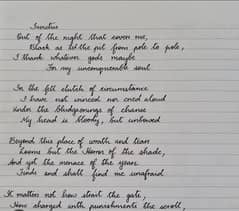 Invictus
Out of the night that cover me,
Black as the pit from pole to pole,
I thank whatever gods maybe
For my unconquerable soul
In the fell clutch of circumstance
I have not winced nor cried aloud
Under the bludgeonings of chance
My head is bloody, but unbowed
Beyond this place of wrath and tears
Looms but the Horror of the shade,
And yet the menace of the years
Finds and shall find me unafraid
It matters not how strait the gate,
How charged with punishments the scroll,